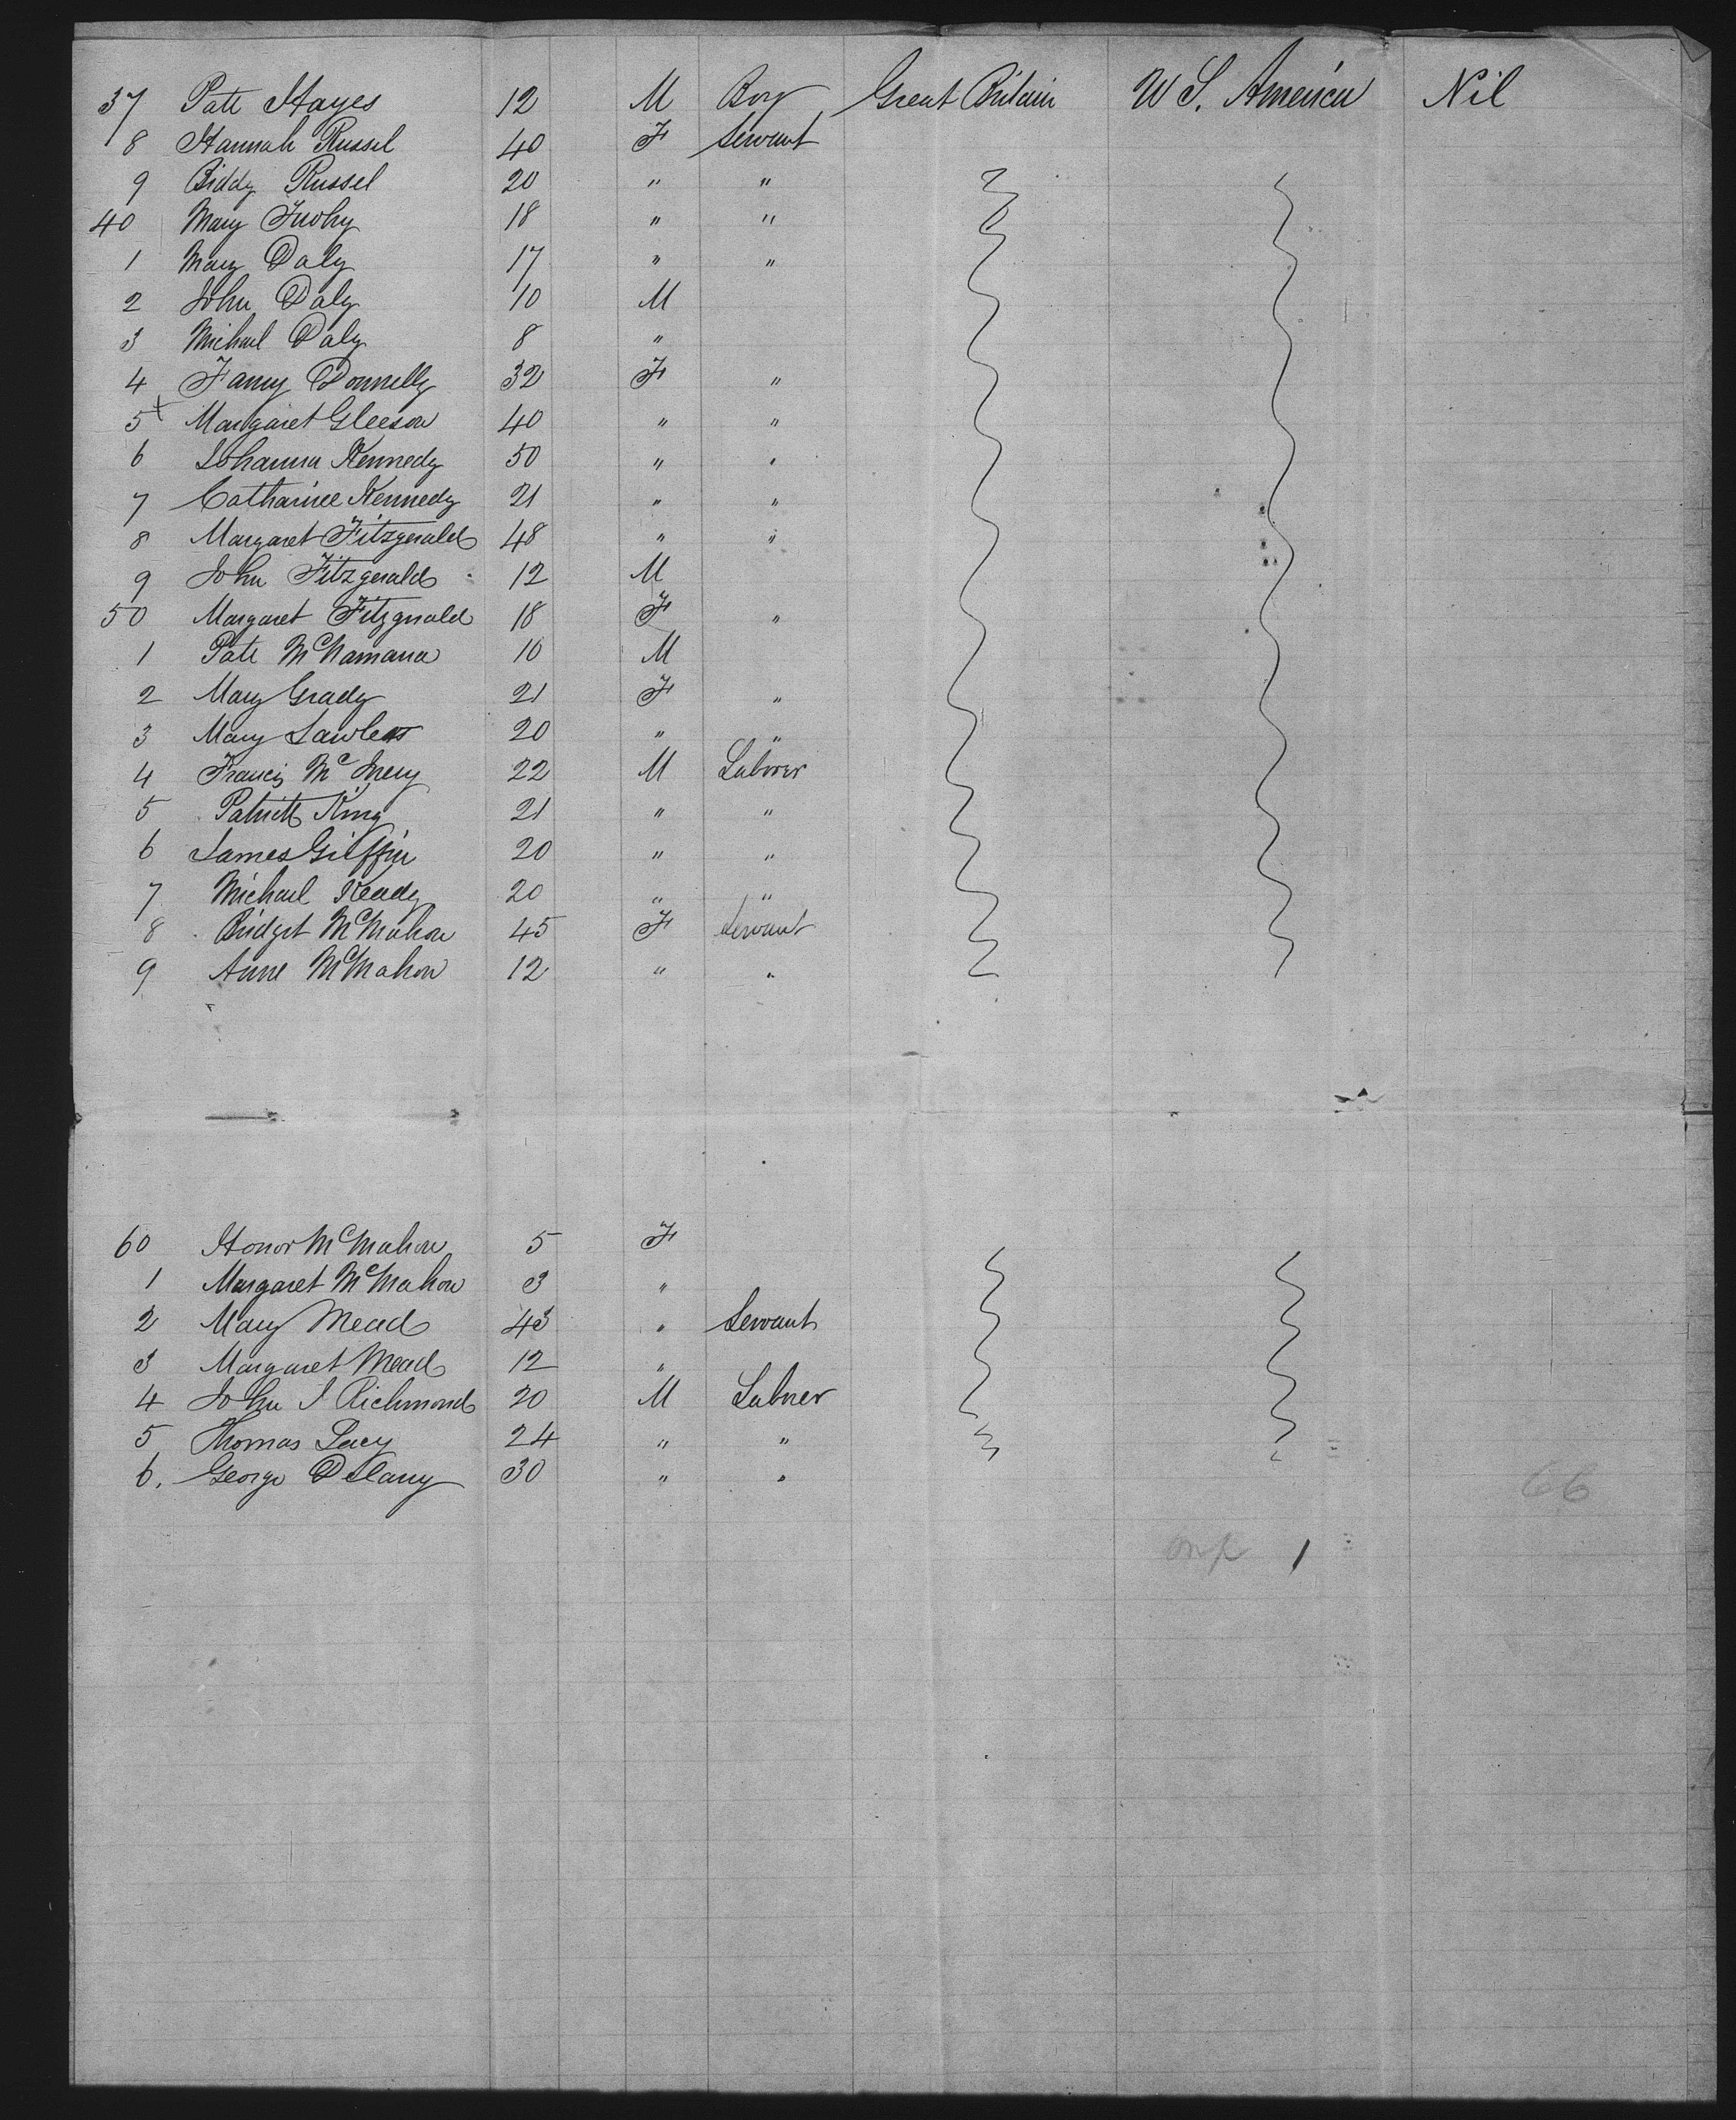 37 Patt Hayes 12 M Boy Great Britain U S. America Nil
8 Hannah Russel 40 F Servant
9 Biddy Russel 20 " "
40 Mary Twohy 18 " "
1 Mary Daly 17 " "
2 John Daly 10 M
3 Michael Daly 8 "
4 Fanny Donnelly 32 F "
5 x Margaret Gleeson 40 " "
6 Johanna Kennedy 50 " "
7 Catharine Kennedy 21 " "
8 Margaret Fitzgerald 48 " "
9 John Fitzgerald 12 M
50 Margaret Fitzgerald 18 F "
1 Patt McNamara 10 M
2 Mary Grady 21 F "
3 Mary Lawless 20 " "
4 Francis McInery 22 M Laborer
5 Patrick King 21 " "
6 James Griffin 20 " "
7 Michael Ready 20 " "
8 Bridget McMahon 45 F Servant
9 Anne McMahon 12 " "
60 Honor McMahon 5 F
1 Margaret McMahon 3 "
2 Mary Mead 43 " Servant
3 Margaret Mead 12 "
4 John J Richmond 20 M Laborer
5 Thomas Lacy 24 " "
6. George Delany 30 " "
66
1